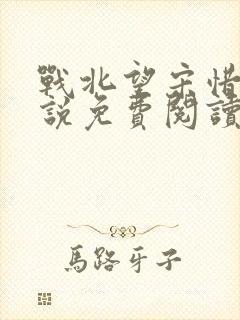 戰北望宋惜
說免費閱讀
馬路牙子